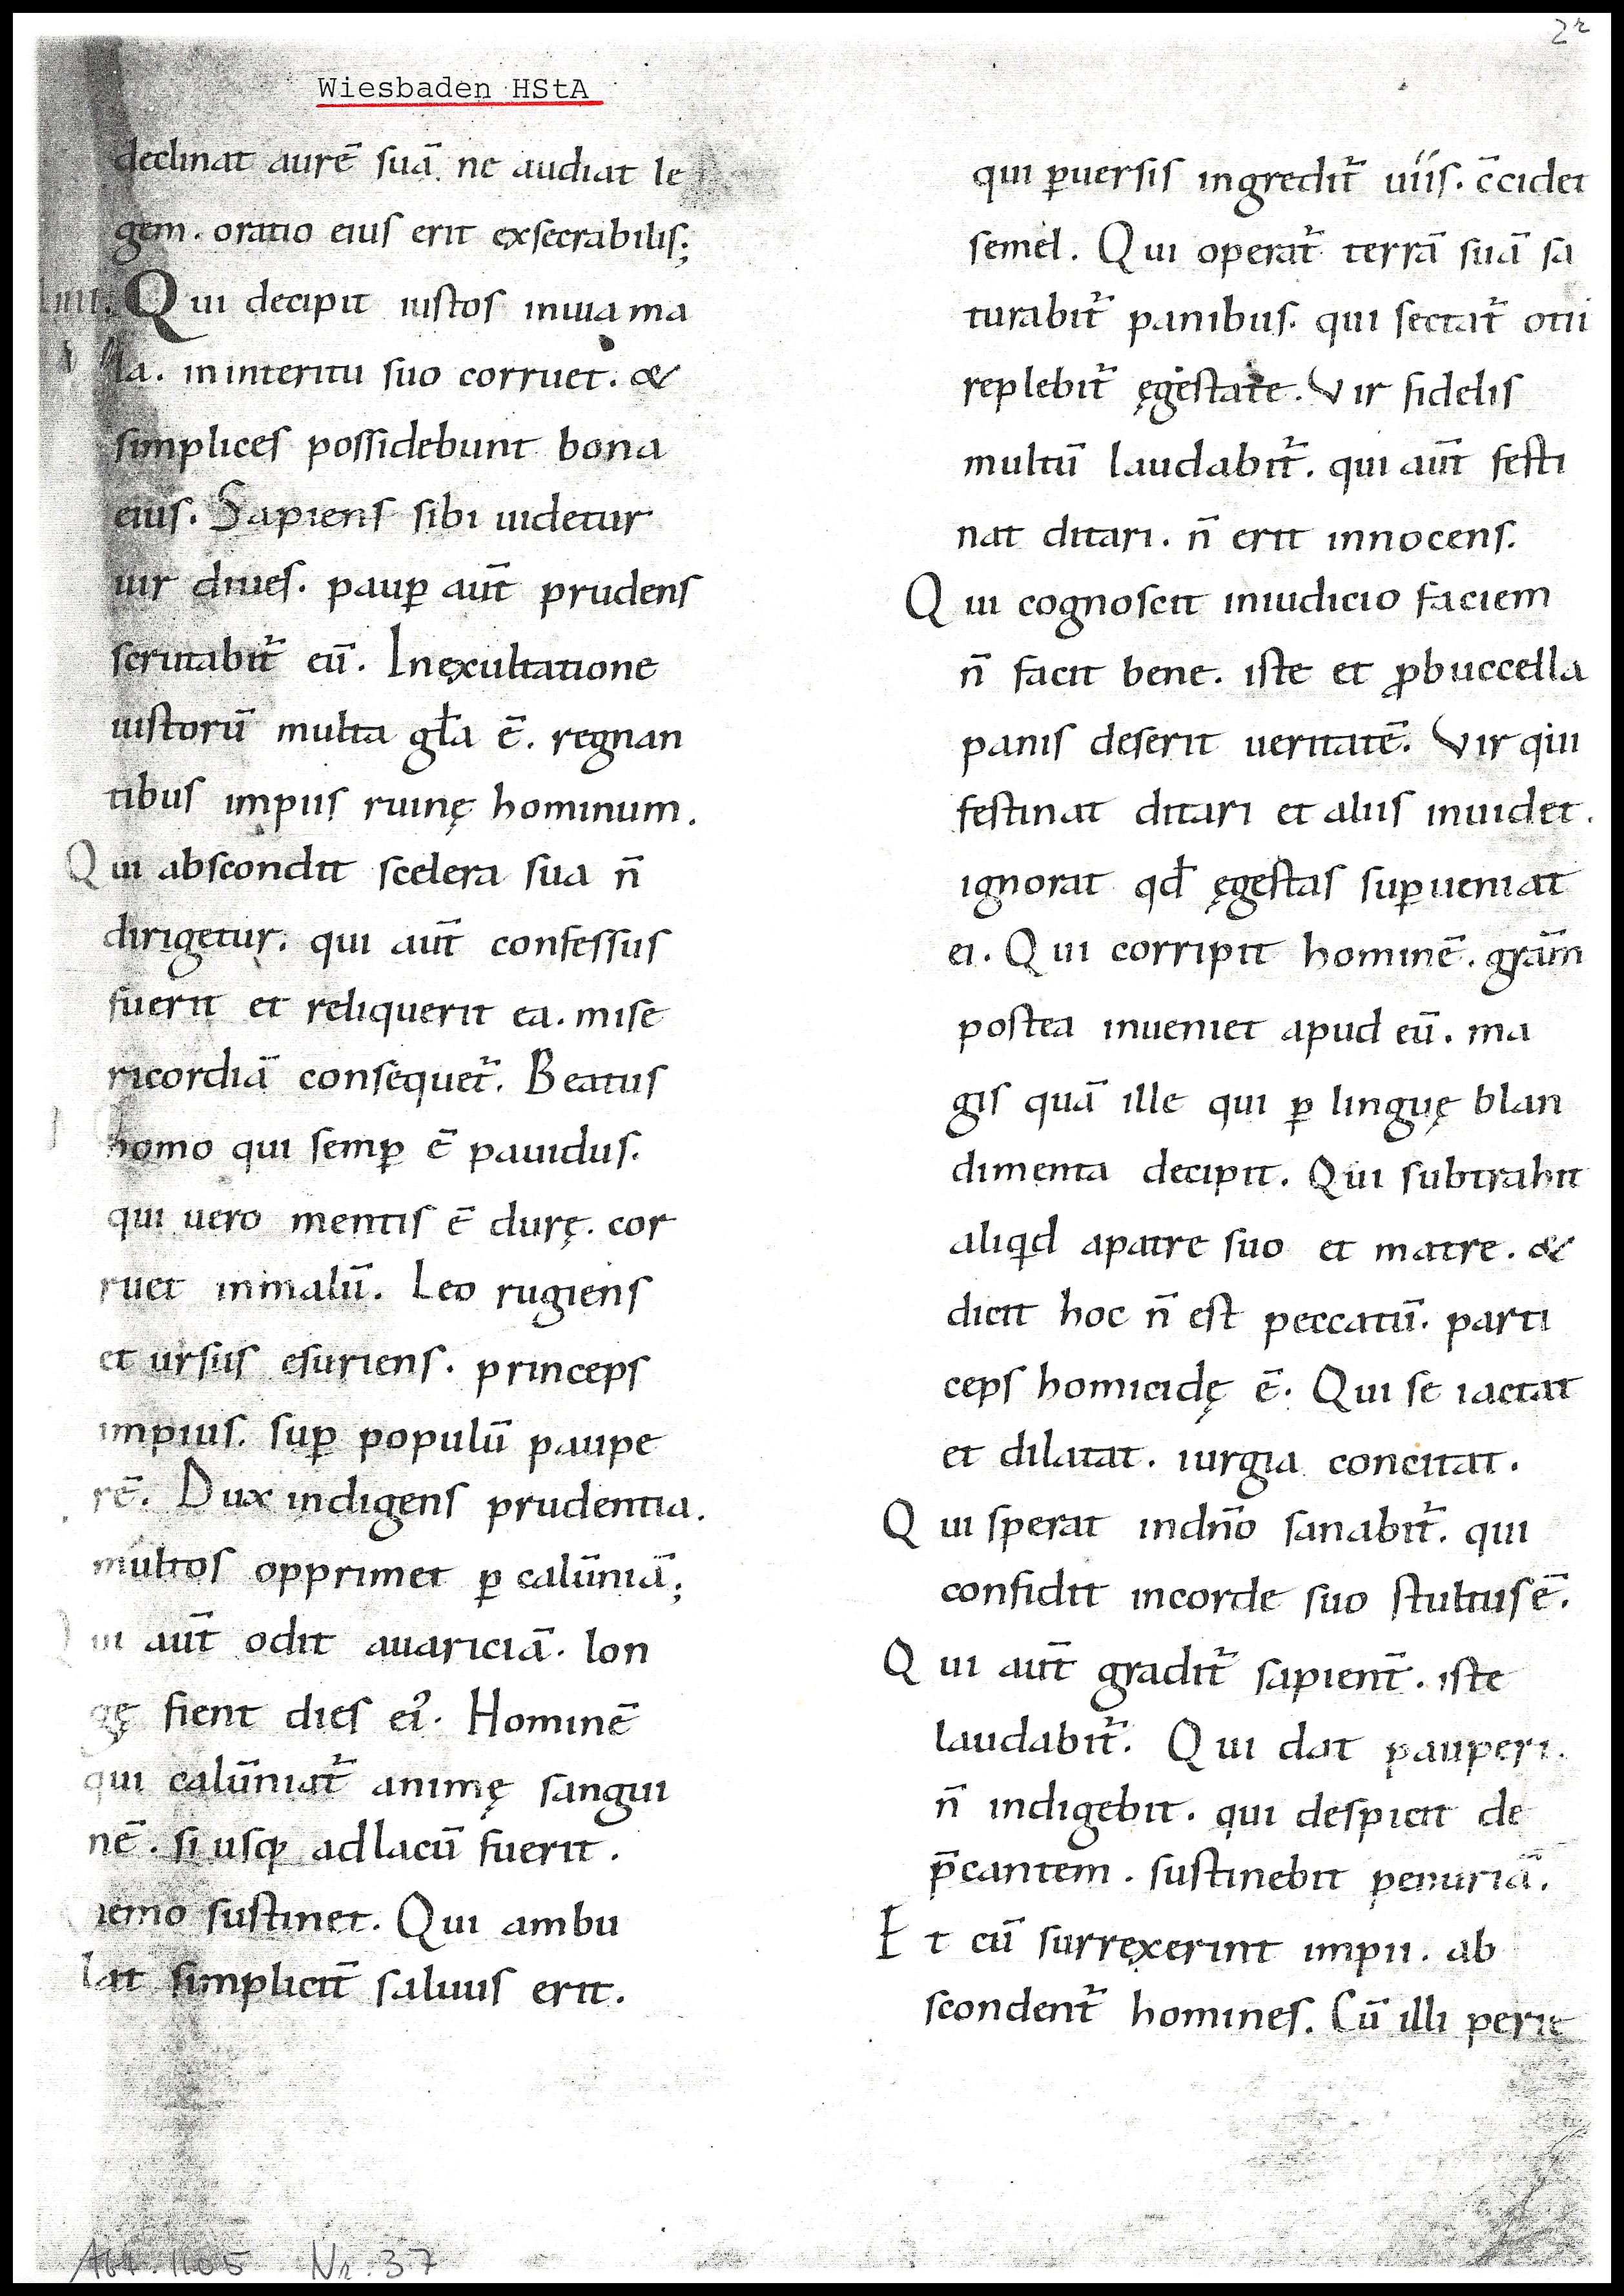 2r
Wiesbaden HStA
declinat aurē suā. ne audiat le
gem. oratio eius erit exsecrabilis;
Qui decipit iustos inuia ma
la. ininteritu suo corruet. &
simplices possidebunt bona
eius. Sapiens sibi uidetur
uir diues. paup̲ aut̄ prudens
scrutabit᷑ eū. Inexultatione
iustorū multa gl̄a ē. regnan
tibus impiis ruinę hominum.
Qui abscondit scelera sua n̄
dirigetur. qui aut̄ confessus
fuerit et reliquerit ea. mise
ricordiā consequet᷑. Beatus
homo qui semꝑ ē pauidus.
qui uero mentis ē durę. cor
ruet inmalū. Leo rugiens
et ursus esuriens. princeps
impius. suꝑ populū paupe
rē. Dux indigens prudentia.
multos opprimet ꝑ calūniā;
Qui aut̄ odit auariciā. lon
gę fient dies ei᾽. Hominē
qui calūniat᷑ animę sangui
nē. si usq; adlacū fuerit.
nemo sustinet. Qui ambu
lat simplicit̄ saluus erit.
qui ꝑuersis ingredit᷑ uiis. c̄cidet
semel. Qui operat᷑ terrā suā sa
turabit᷑ panibus. qui sectat᷑ otii
replebit᷑ ęgestate. Vir fidelis
multū laudabit᷑. qui aut̄ festi
nat ditari. n̄ erit innocens.
Qui cognoscit iniudicio faciem
n̄ facit bene. iste et ꝓbuccella
panis deserit ueritatē. Vir qui
festinat ditari et aliis inuidet.
ignorat qd̄ ęgestas suꝑueniat
ei. Qui corripit hominē. gr̄am
postea inueniet apud eū. ma
gis quā ille qui ꝑ linguę blan
dimenta decipit. Qui subtrahit
aliqd apatre suo et matre. &
dicit hoc n̄ est peccatū. parti
ceps homicidę ē. Qui se iactat
et dilatat. iurgia concitat.
Qui sperat indn̄o sanabit᷑. qui
confidit incorde suo stultus ē.
Qui aut̄ gradit᷑ sapient̄. iste
laudabit᷑. Qui dat pauperi.
n̄ indigebit. qui despicit de
p̄cantem. sustinebit penuriā.
Et cū surrexerint impii. ab
scondent᷑ homines. Cū illi perie
Abt. 1105 Nr. 37